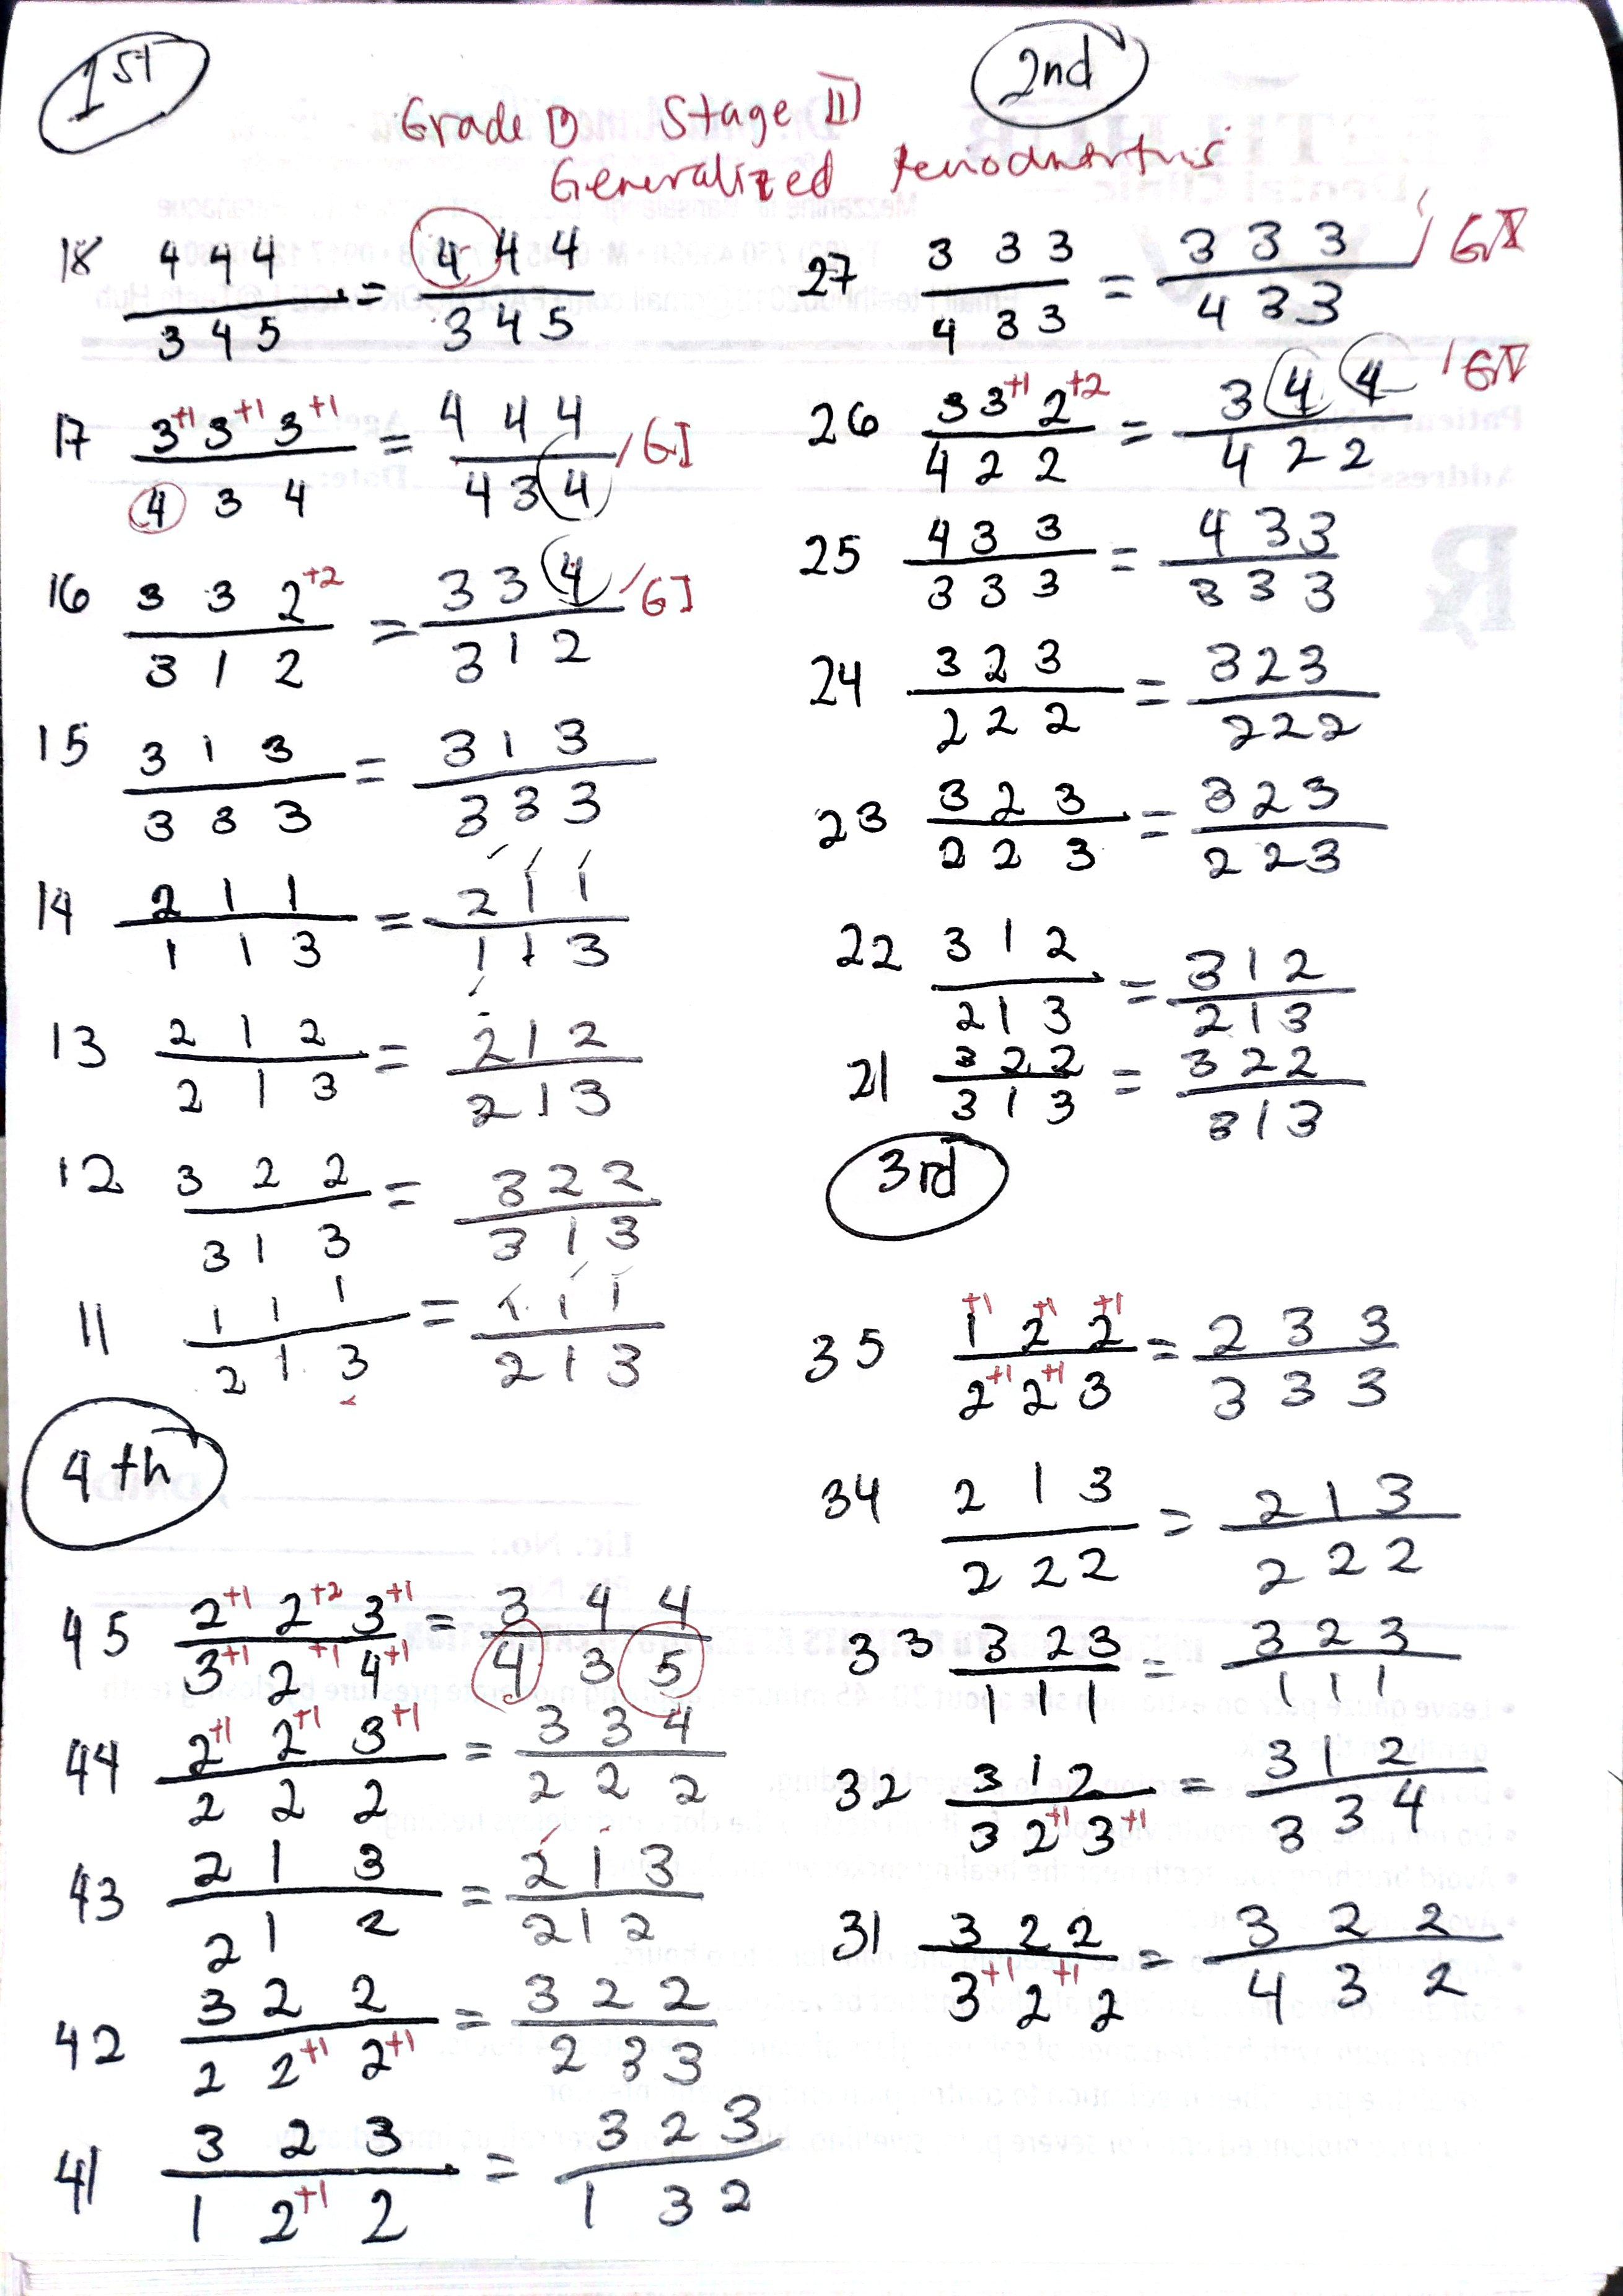 1st
2nd
Grade B Stage III
Generalized Periodontitis
18 4 4 4 = 4 4 4
3 4 5 3 4 5
17 3+1 3+1 3+1 = 4 4 4 / GI
4 3 4 4 3 4
16 3 3 2+2 = 3 3 4 / GI
3 1 2 3 1 2
15 3 1 3 = 3 1 3
3 3 3 3 3 3
14 2 1 1 = 2 1 1
1 1 3 1 1 3
13 2 1 2 = 2 1 2
2 1 3 2 1 3
12 3 2 2 = 3 2 2
3 1 3 3 1 3
11 1 1 1 = 1 1 1
2 1 3 2 1 3
27 3 3 3 = 3 3 3
4 3 3 4 3 3
26 3 3+1 2+2 = 3 4 4
4 2 2 4 2 2
25 4 3 3 = 4 3 3
3 3 3 3 3 3
24 3 2 3 = 3 2 3
2 2 2 2 2 2
23 3 2 3 = 3 2 3
2 2 3 2 2 3
22 3 1 2 = 3 1 2
2 1 3 2 1 3
21 3 2 2 = 3 2 2
3 1 3 3 1 3
3rd
35 1+1 2+1 2+1 = 2 3 3
2+1 2+1 3 3 3 3
34 2 1 3 = 2 1 3
2 2 2 2 2 2
33 3 2 3 = 3 2 3
1 1 1 1 1 1
32 3 1 2 = 3 1 2
3 2+1 3+1 3 3 4
31 3 2 2 = 3 2 2
3+1 2+1 2 4 3 2
4th
45 2+1 2+2 3+1 = 3 4 4
3+1 2+1 4+1 4 3 5
44 2+1 2+1 3+1 = 3 3 4
2 2 2 2 2 2
43 2 1 3 = 2 1 3
2 1 2 2 1 2
42 3 2 2 = 3 2 2
2 2+1 2+1 2 3 3
41 3 2 3 = 3 2 3
1 2+1 2 1 3 2